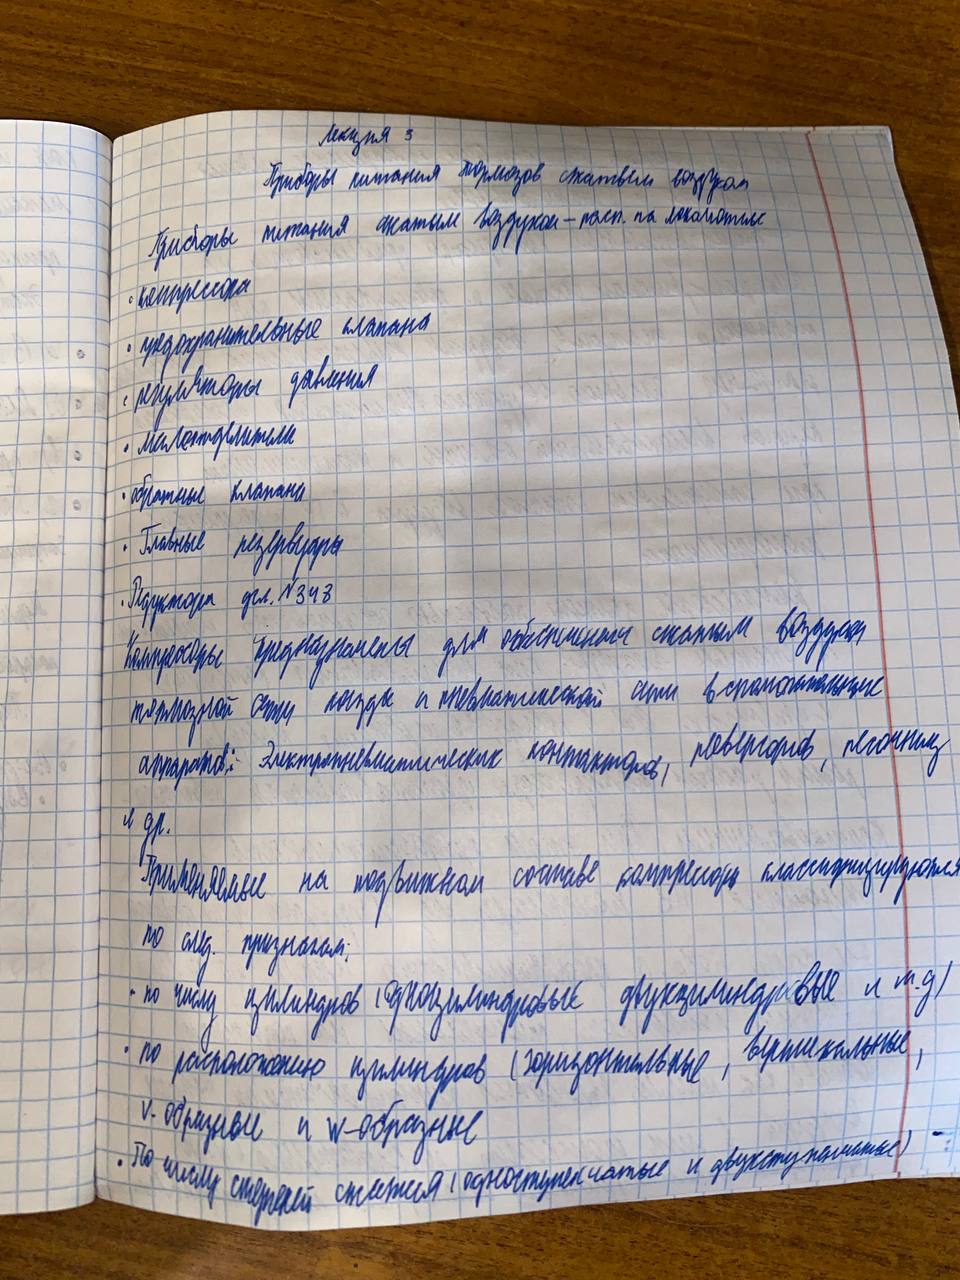 Лекция 3
Приборы питания тормозов сжатым воздухом
Приборы питания сжатым воздухом – расп. на локомотиве
• компрессора
• предохранительные клапана
• регуляторы давления
• маслоотделители
• обратные клапана
• Главные резервуары
• Редуктора усл. №348
Компрессоры предназначены для обеспечения сжатым воздухом
тормозной сети поезда и пневматической сети вспомогательных
аппаратов: электропневматических контакторов, реверсоров, песочниц
и др.
Применяемые на подвижном составе компрессора классифицируются
по след. признакам:
• по числу цилиндров (одноцилиндровые двухцилиндровые и т.д)
• по расположению цилиндров (горизонтальные, вертикальные,
V-образные и W-образные
• По числу ступеней сжатия (одноступенчатые и двухступенчатые)